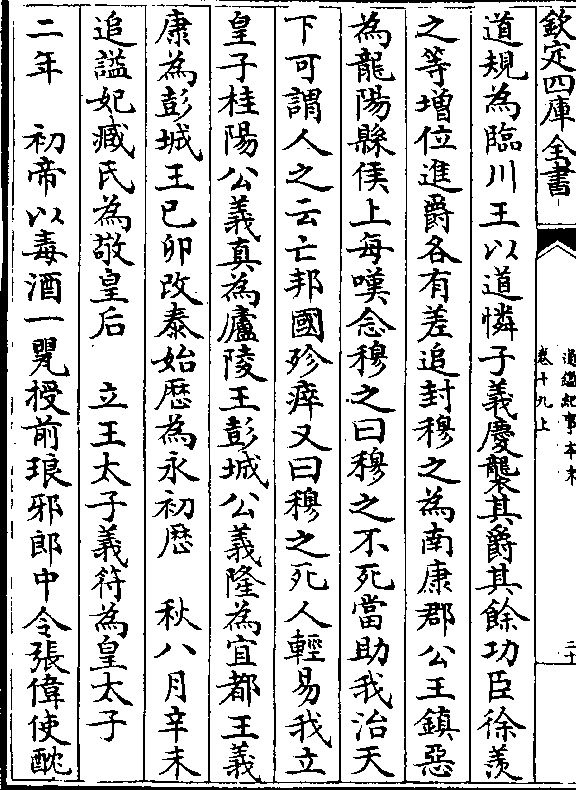 欽定四庫全書
通鑑紀事本末
卷十九上
二十
道規為臨川王以道憐子義慶襲其爵其餘功臣徐羨
之等增位進爵各有差追封穆之為南康郡公王鎮惡
為龍陽縣侯上每嘆念穆之曰穆之不死當助我治天
下可謂人之云亡邦國殄瘁又曰穆之死人輕易我立
皇子桂陽公義真為廬陵王彭城公義隆為宜都王義
康為彭城王已卯改泰始厯為永初厯 秋八月辛未
追謚妃臧氏為敬皇后 立王太子義符為皇太子
二年 初帝以毒酒一甖授前琅邪郎中令張偉使酖